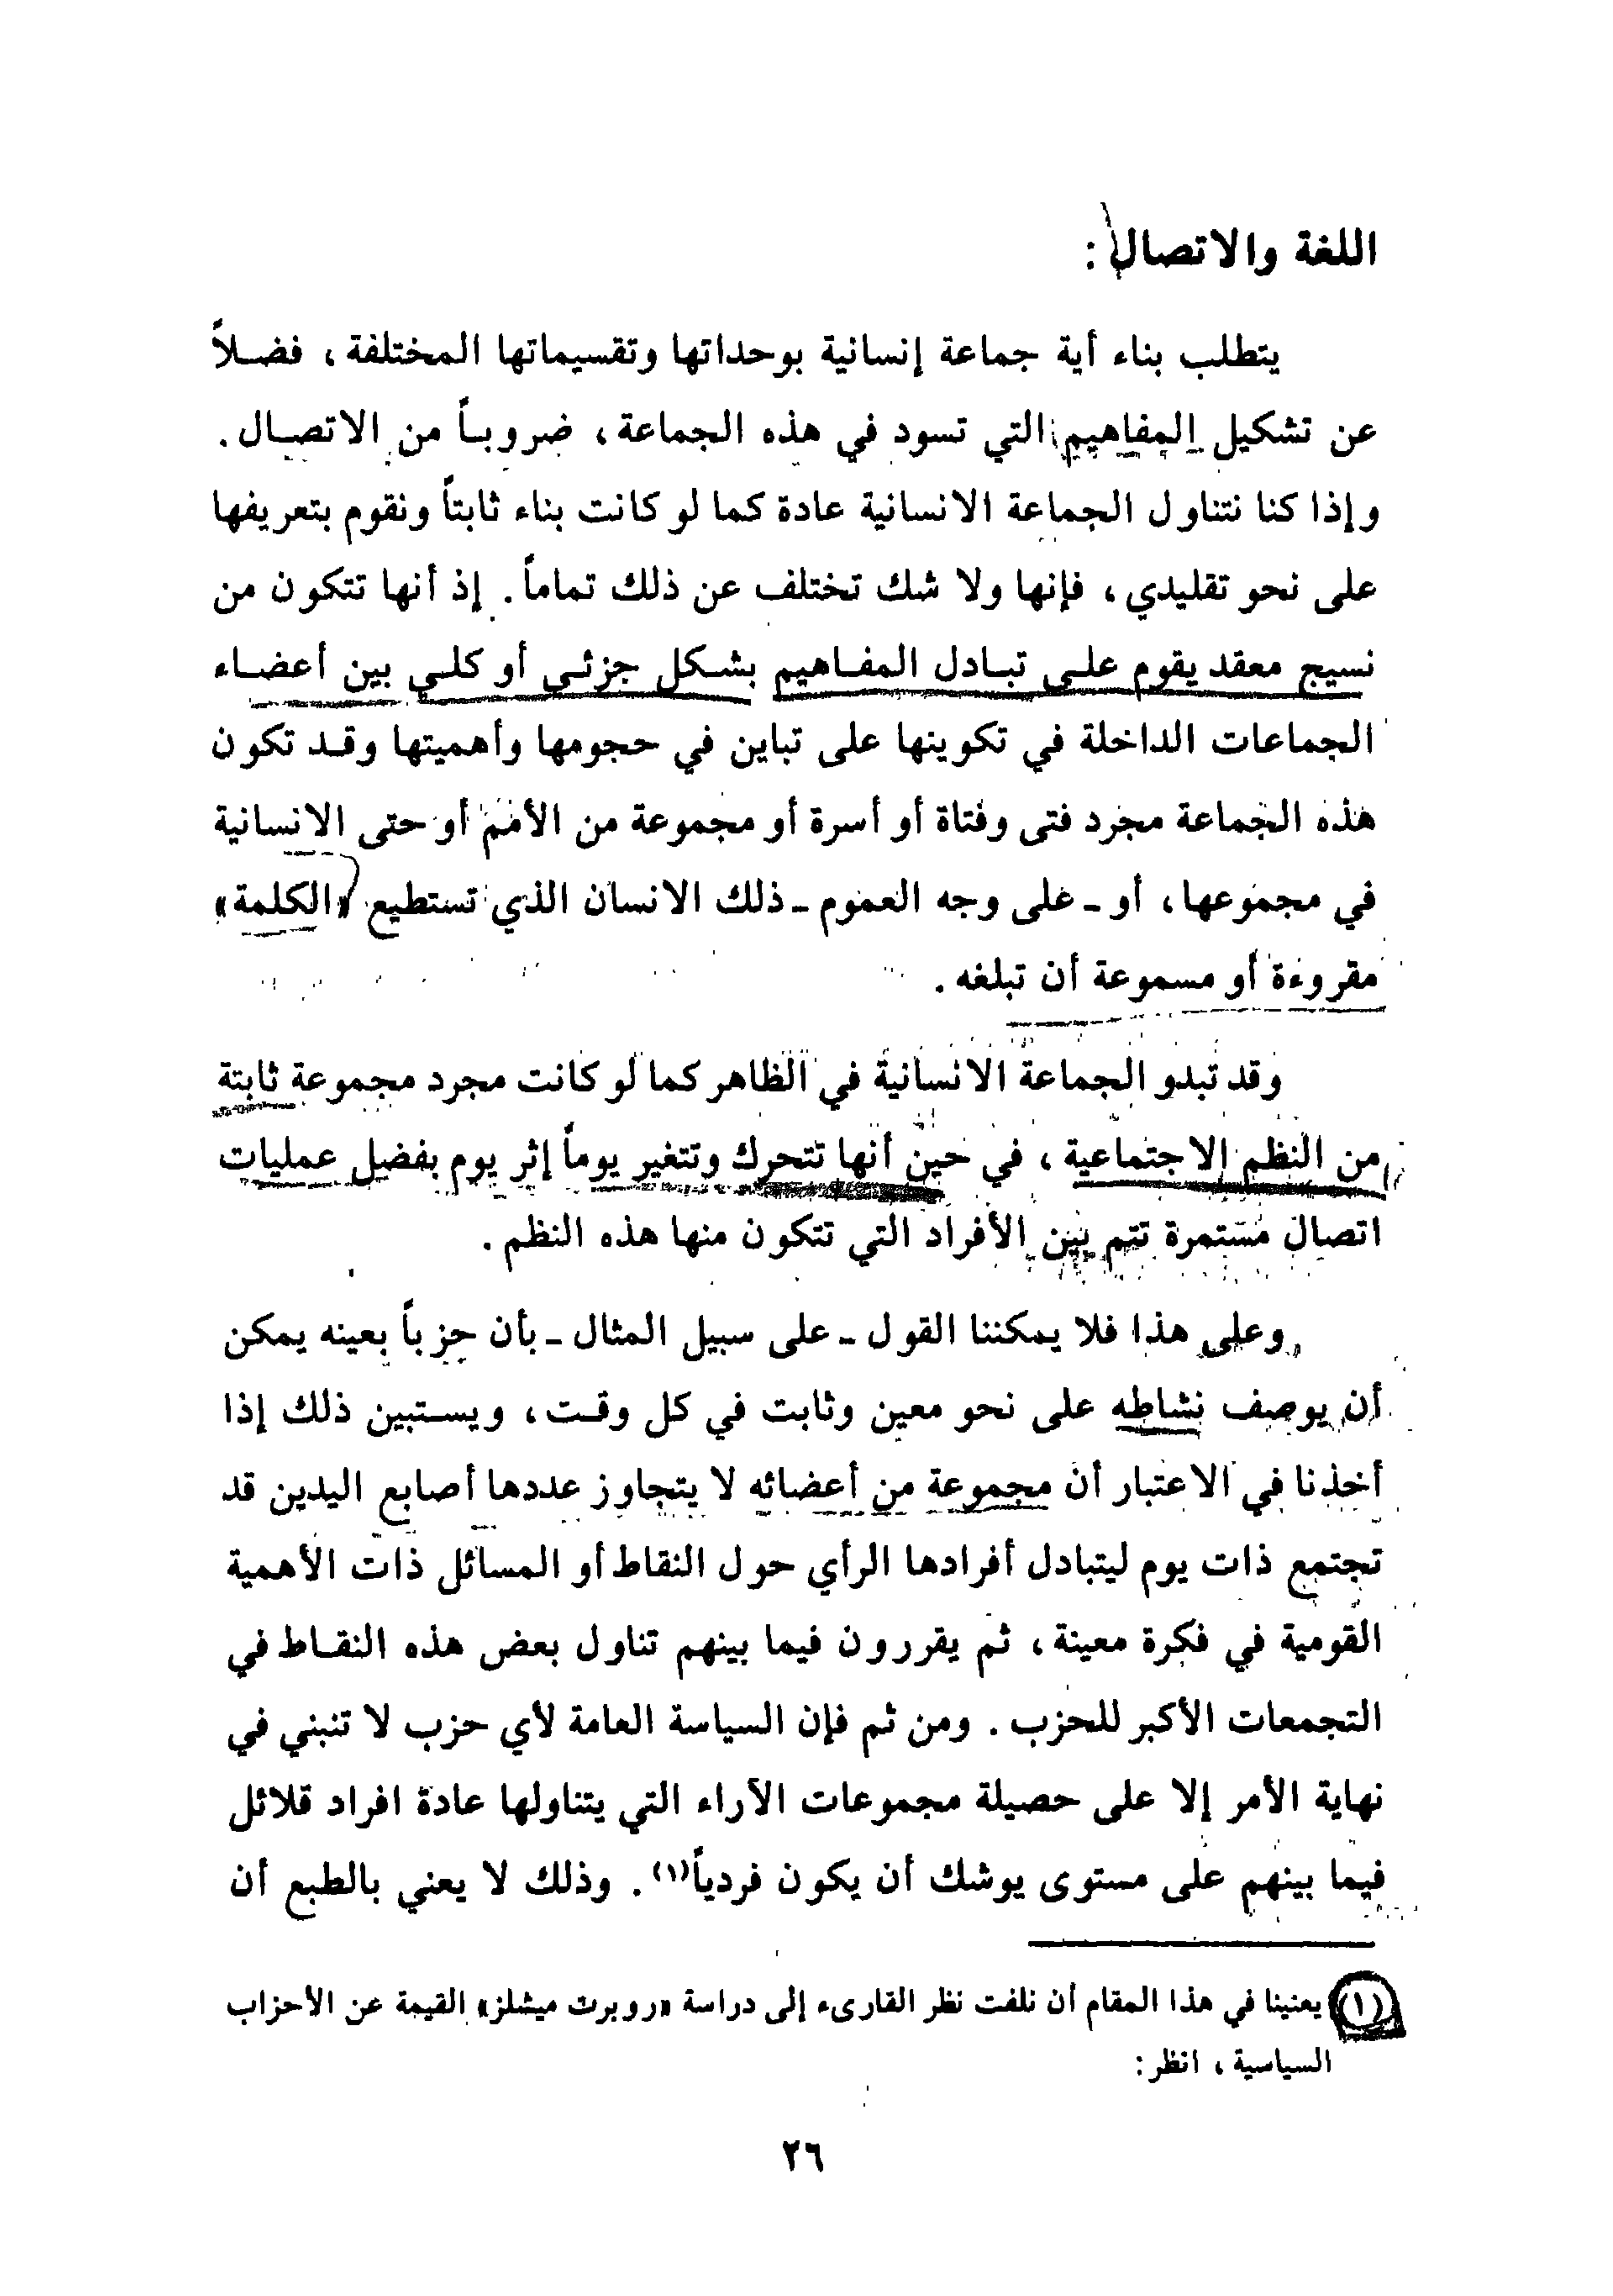 اللغة والاتصال :
يتطلب بناء أية جماعة إنسانية بوحداتها وتقسيماتها المختلفة ، فضلاً
عن تشكيل المفاهيم التي تسود في هذه الجماعة ، ضروباً من الاتصال .
وإذا كنا نتناول الجماعة الانسانية عادة كما لو كانت بناء ثابتاً ونقوم بتعريفها
على نحو تقليدي ، فإنها ولا شك تختلف عن ذلك تماماً . إذ أنها تتكون من
نسيج معقد يقوم على تبادل المفاهيم بشكل جزئي أو كلي بين أعضاء
الجماعات الداخلة في تكوينها على تباين في حجومها وأهميتها وقد تكون
هذه الجماعة مجرد فتى وفتاة أو أسرة أو مجموعة من الأمم أو حتى الانسانية
في مجموعها ، أو - على وجه العموم - ذلك الانسان الذي تستطيع «الكلمة»
مقروءة أو مسموعة أن تبلغه .
وقد تبدو الجماعة الانسانية في الظاهر كما لو كانت مجرد مجموعة ثابتة
من النظم الاجتماعية ، في حين أنها تتحرك وتتغير يوماً إثر يوم بفضل عمليات
اتصال مستمرة تتم بين الأفراد التي تتكون منها هذه النظم .
وعلى هذا فلا يمكننا القول - على سبيل المثال - بأن حزباً بعينه يمكن
أن يوصف نشاطه على نحو معين وثابت في كل وقت ، ويستبين ذلك إذا
أخذنا في الاعتبار أن مجموعة من أعضائه لا يتجاوز عددها أصابع اليدين قد
تجتمع ذات يوم ليتبادل أفرادها الرأي حول النقاط أو المسائل ذات الأهمية
القومية في فكرة معينة ، ثم يقررون فيما بينهم تناول بعض هذه النقاط في
التجمعات الأكبر للحزب . ومن ثم فإن السياسة العامة لأي حزب لا تنبني في
نهاية الأمر إلا على حصيلة مجموعات الآراء التي يتناولها عادة افراد قلائل
فيما بينهم على مستوى يوشك أن يكون فردياً(١) . وذلك لا يعني بالطبع أن
(١) يعنينا في هذا المقام أن نلفت نظر القارىء إلى دراسة «روبرت ميشلز» القيمة عن الأحزاب
السياسية ، انظر :
٢٦